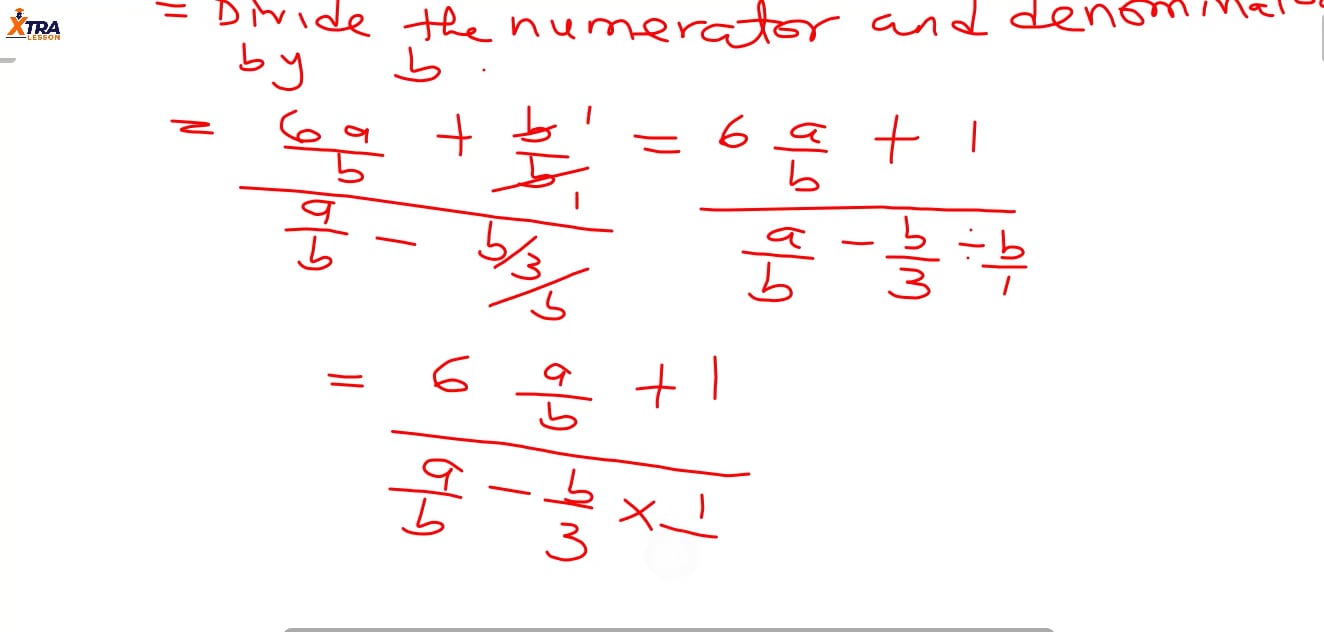 XTRA
LESSON
= Divide the numerator and denominator
by b.
= (6a/b + b/b 1 1) / (a/b - (b/3)/b) = (6 a/b + 1) / (a/b - b/3 ÷ b/1)
= (6 a/b + 1) / (a/b - b/3 × 1/